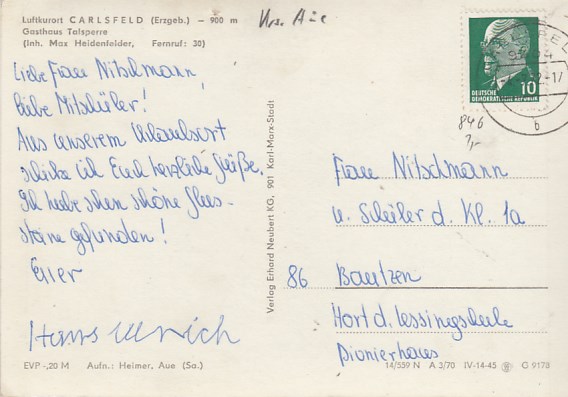 Luftkurort CARLSFELD (Erzgeb.) — 900 m
Gasthaus Talsperre
(Inh. Max Heidenfelder, Fernruf: 30)
Krs. Aue
Liebe Frau Nitschmann,
liebe Mitschüler!
Aus unserem Urlaubsort
schicke ich Euch herzliche Grüße.
Ich habe schon schöne Glas-
steine gefunden!
Euer
Hans Ulrich
EVP -,20 M Aufn.: Heimer, Aue (Sa.)
Verlag Erhard Neubert KG, 901 Karl-Marx-Stadt
10
DEUTSCHE
DEMOKRATISCHE REPUBLIK
b
846
Frau Nitschmann
u. Schüler d. Kl. 1a
86 Bautzen
Hort d. Lessingschule
Pionierhaus
14/559 N A 3/70 IV-14-45 G 9178